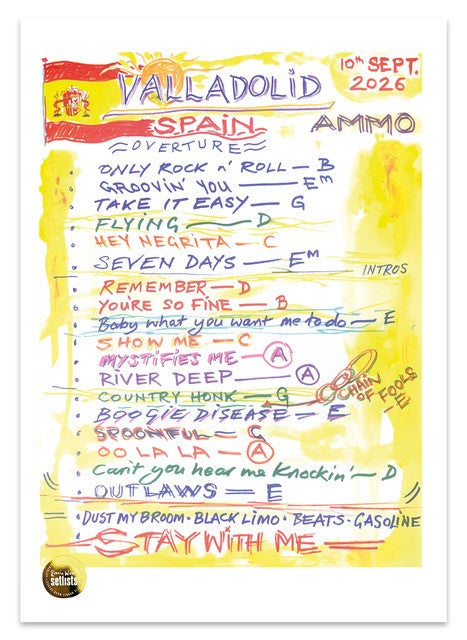 VALLADOLID
10th SEPT.
2026
SPAIN
AMMO
OVERTURE
ONLY ROCK n' ROLL — B
GROOVIN' YOU — Em
TAKE IT EASY — G
FLYING — D
HEY NEGRITA — C
SEVEN DAYS — Em
INTROS
REMEMBER — D
YOU'RE SO FINE — B
Baby what you want me to do — E
SHOW ME — C
MYSTIFIES ME — A
RIVER DEEP — A
COUNTRY HONK — G
CHAIN OF FOOLS — E
BOOGIE DISEASE — E
SPOONFUL — C
OO LA LA — A
Can't you hear me Knockin' — D
OUTLAWS — E
• DUST MY BROOM • BLACK LIMO • BEATS • GASOLINE
STAY WITH ME
setlists